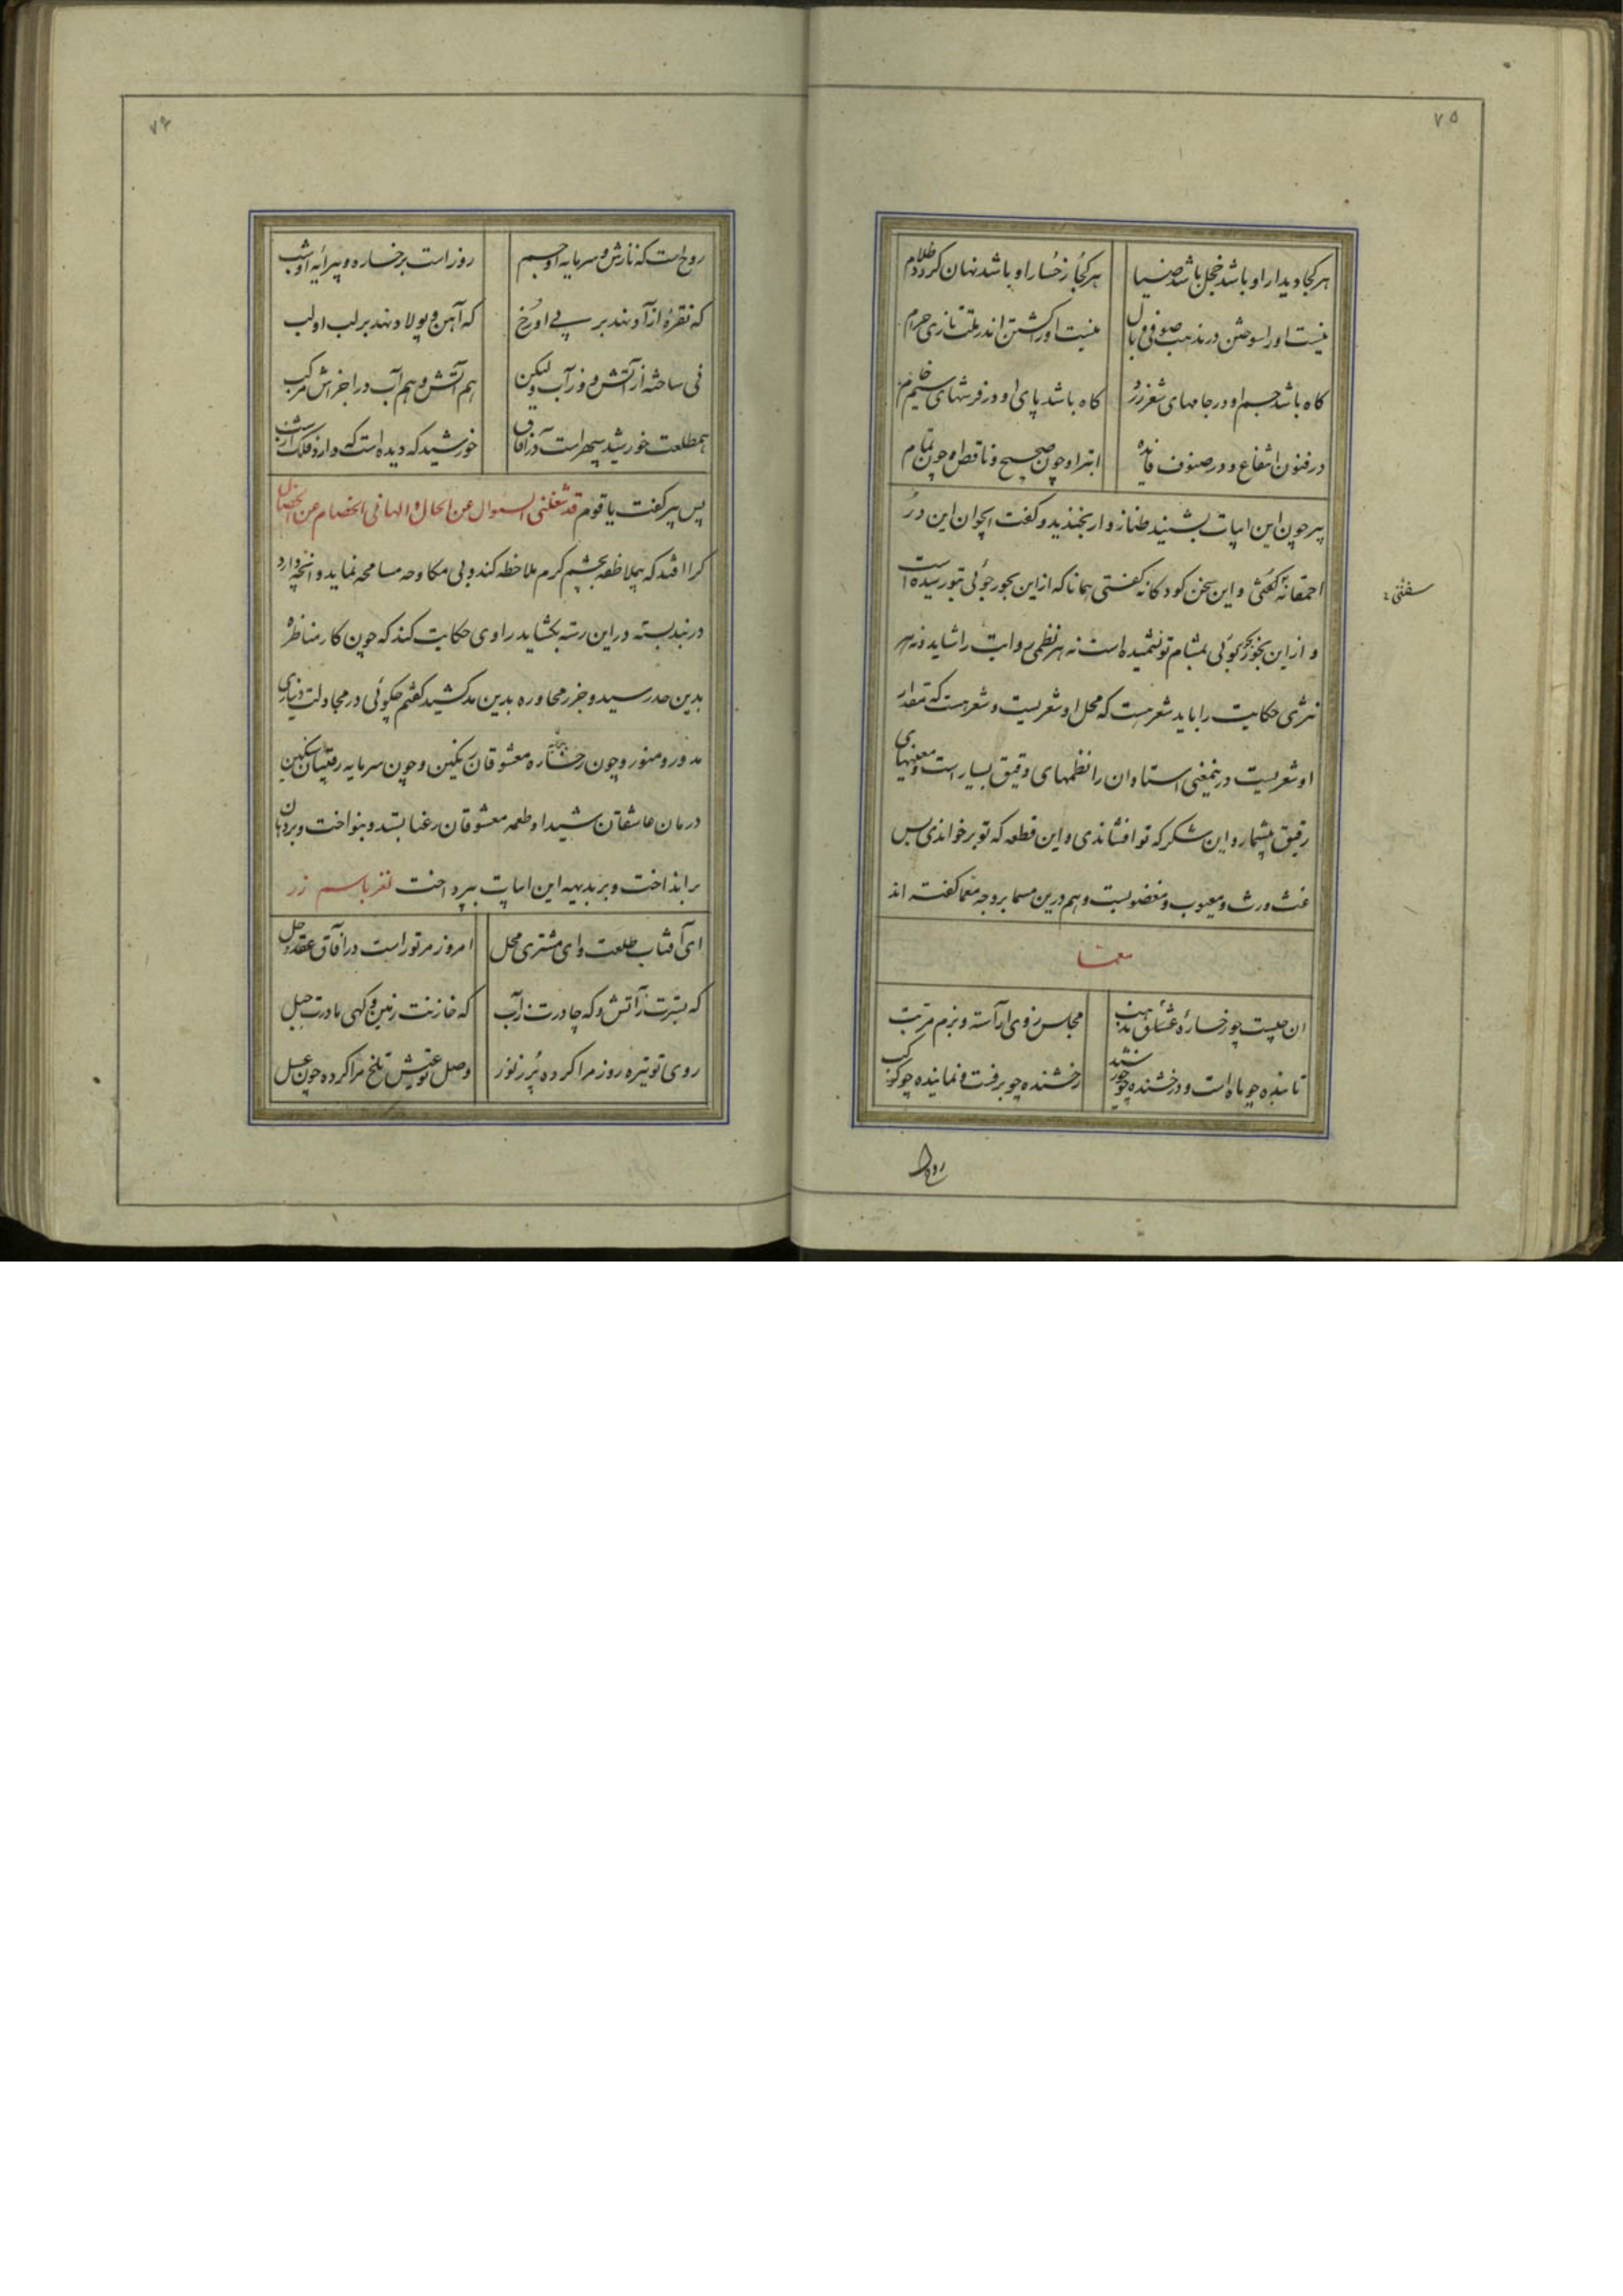 ۷۵
هر کجا دیدار او باشد خجل باشد ضیا هر کجا رخسار او باشد نهان گردد ظلام
نیست او را سوختن در مذهب صوفی وبال نیست او را کشتن اندر ملت تازی حرام
گاه باشد جسم او در جامهای شعر زرد گاه باشد پای او در فرشهای سیم خام
در فنون انتفاع و در صنوف فایده ابتر او چون صحیح و ناقص او چون تمام
پیر چون این ابیات بشنید طناز وار بخندید و گفت ایجوان این در
احمقانه گفتی و این سخن کودکانه گفتی همانا که از این بحور جوئی بتو رسیده است
سفتی
و از این بخور بوئی بمشام تو نشمیده است نه هر نظمی روایت را شاید و نه هر
نثری حکایت را باید شعر هست که محل او شعریست و شعر هست که مقدار
او شعریست درینمعنی استادان را نظمهای دقیق بسیار است و معنیهای
رقیق بیشمار و این شکر که تو افشاندی و این قطعه که تو برخواندی بس
غث و رث و معیوب و مغضوبست و هم درین مسما بر وجه معما گفته اند
معما
آن چیست چو رخسارهٔ عشاق مذهب مجلس ز وی آراسته و بزم مرتب
تابنده چو ماه است و درخشنده چو خورشید رخشنده چو برقست و نماینده چو کوکب
روح
۷۶
روح است که نازش و سرمایه او جسم روز است بر خساره و پیرایه او شب
که نقره از آو نهد بر پی او رخ که آهن و پولاد نهد بر لب او لب
نی ساخته از آتش و ز آب ولیکن هم آتش و هم آب در اجزاش مرکب
همطلعت خورشید سپهر است در آفاق خورشید که دیده است که دارد فلک از شب
پس پیر گفت یا قوم قد شغلنی السوال عن الحال و الهانی الخصام عن الخصال
کرا افتد که بملاطفه بچشم کرم ملاحظه کند و بی مکاوحه مسامحه نماید و آنچه دارد
در بند بسته در این رسته بگشاید راوی حکایت کند که چون کار مناظره
بدین حد رسید و جزر محاوره بدین مد کشید گفتم چگوئی در مجاولت دیناری
مدور و منور و چون رخساره معشوقان رنگین و چون سرمایه رقیبان سنگین
درمان عاشقان شیدا و طعمه معشوقان رعنا بستد و بنواخت و بر دهان
برانداخت و بر بدیهه این ابیات بپرداخت لغز باسم زر
ای آفتاب طلعت و ای مشتری محل امروز مر تو راست در آفاق عقد و حل
که بسترت ز آتش و که چادرت ز آب که خازنت زمین و گهی مادرت جبل
روی تو تیره روز مرا کرده پر ز نور وصل تو عیش تلخ مرا کرده چون عسل